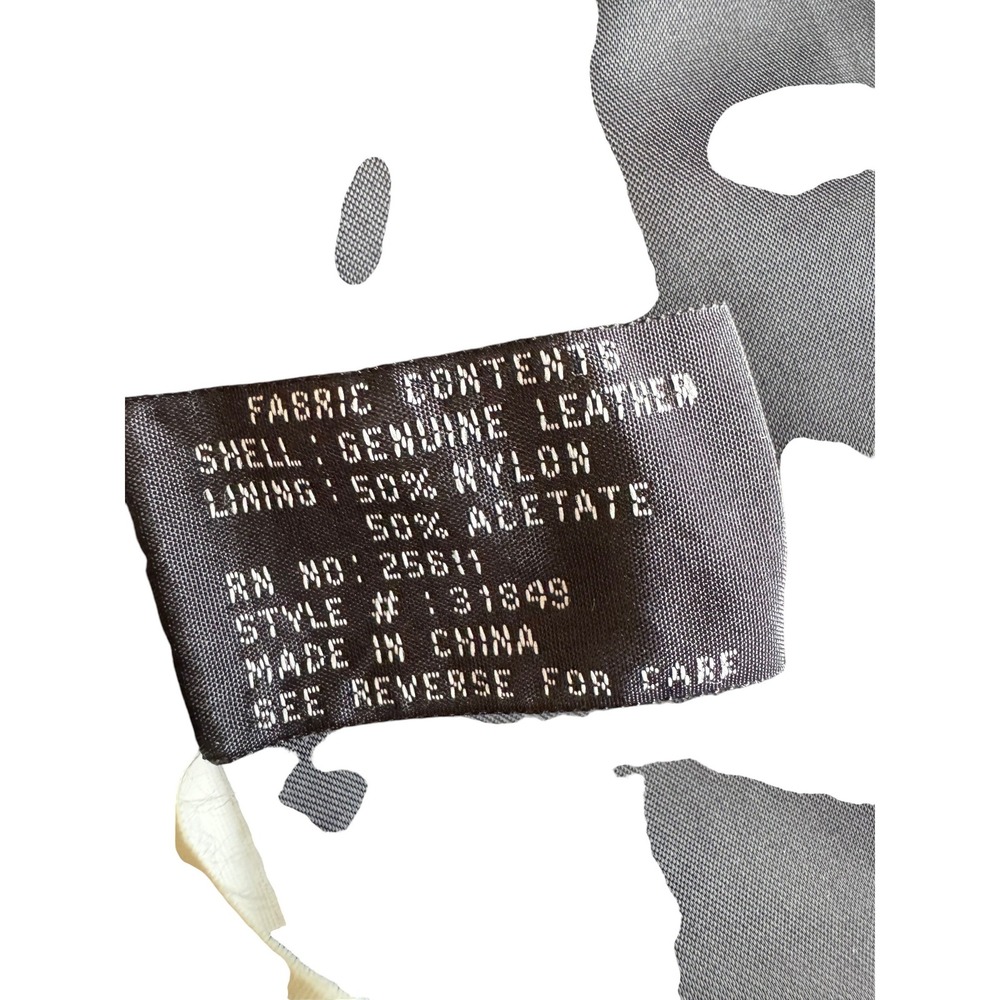 FABRIC CONTENTS
SHELL: GENUINE LEATHER
LINING: 50% NYLON
50% ACETATE
RN NO: 25611
STYLE #: 31849
MADE IN CHINA
SEE REVERSE FOR CARE